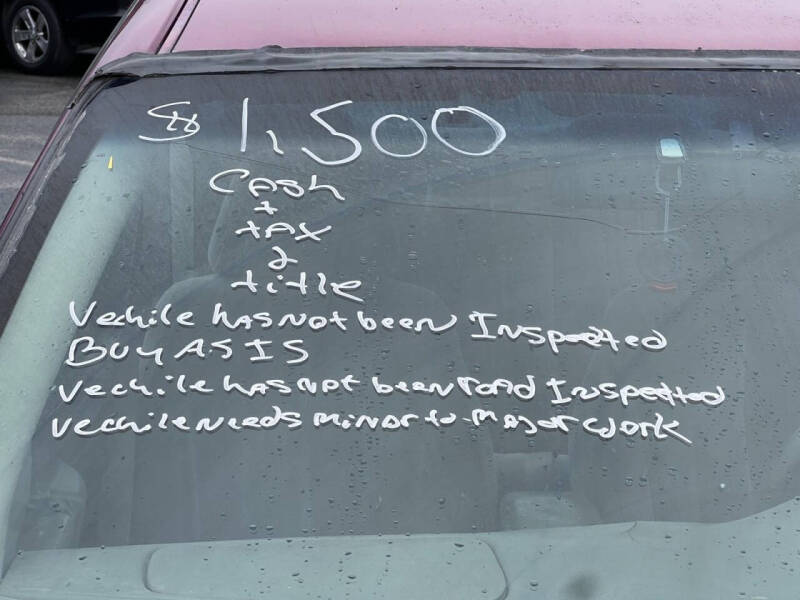 $1,500
Cash
+
tAx
&
title
Vechile hAs Not been Inspedted
Buy AS IS
Vechile hAs Not been roAd Inspedted
Vechile Needs Minor to MAjor work